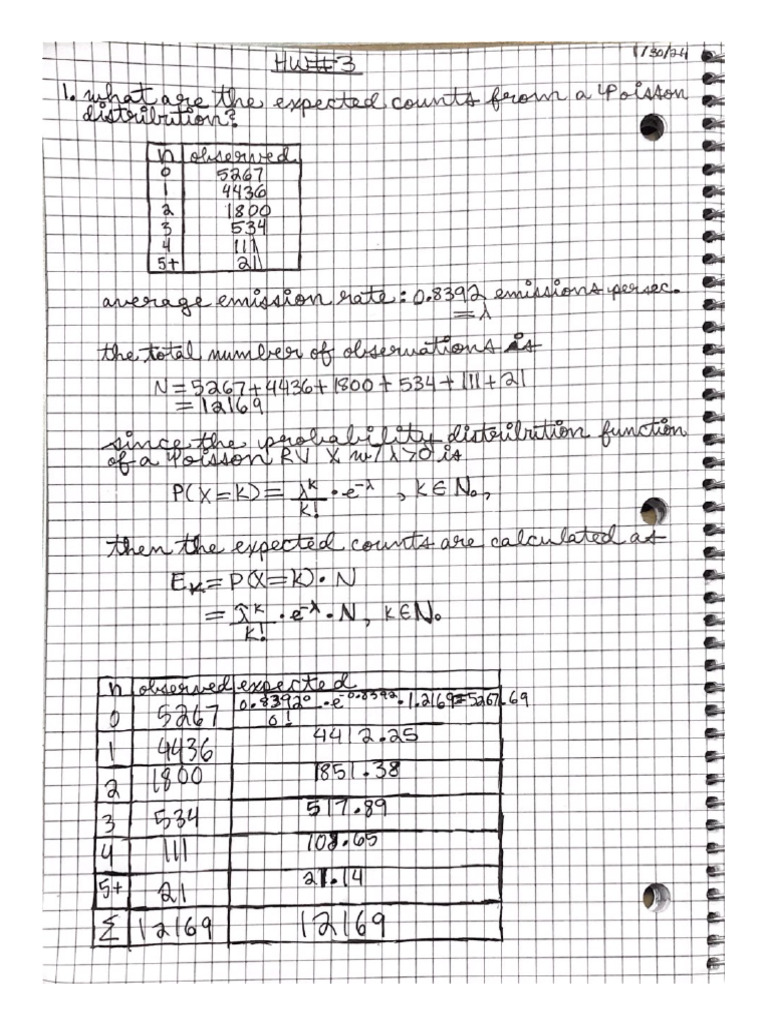 HW#3
1/30/24
1. what are the expected counts from a Poisson
distribution?
n observed
0 5267
1 4436
2 1800
3 534
4 111
5+ 21
average emission rate: 0.8392 emissions per sec.
= λ
the total number of observations is
N = 5267 + 4436 + 1800 + 534 + 111 + 21
= 12169
since the probability distribution function
of a Poisson RV X w/ λ > 0 is
P(X = k) = λ^k/k! · e^-λ , k ∈ N₀,
then the expected counts are calculated as
E_k = P(X = k) · N
= λ^k/k! · e^-λ · N, k ∈ N₀
n observed expected
0 5267 0.8392⁰/0! · e^-0.8392 · 1.2169 = 5267.69
1 4436 4412.25
2 1800 1851.38
3 534 517.89
4 111 108.65
5+ 21 21.14
Σ 12169 12169